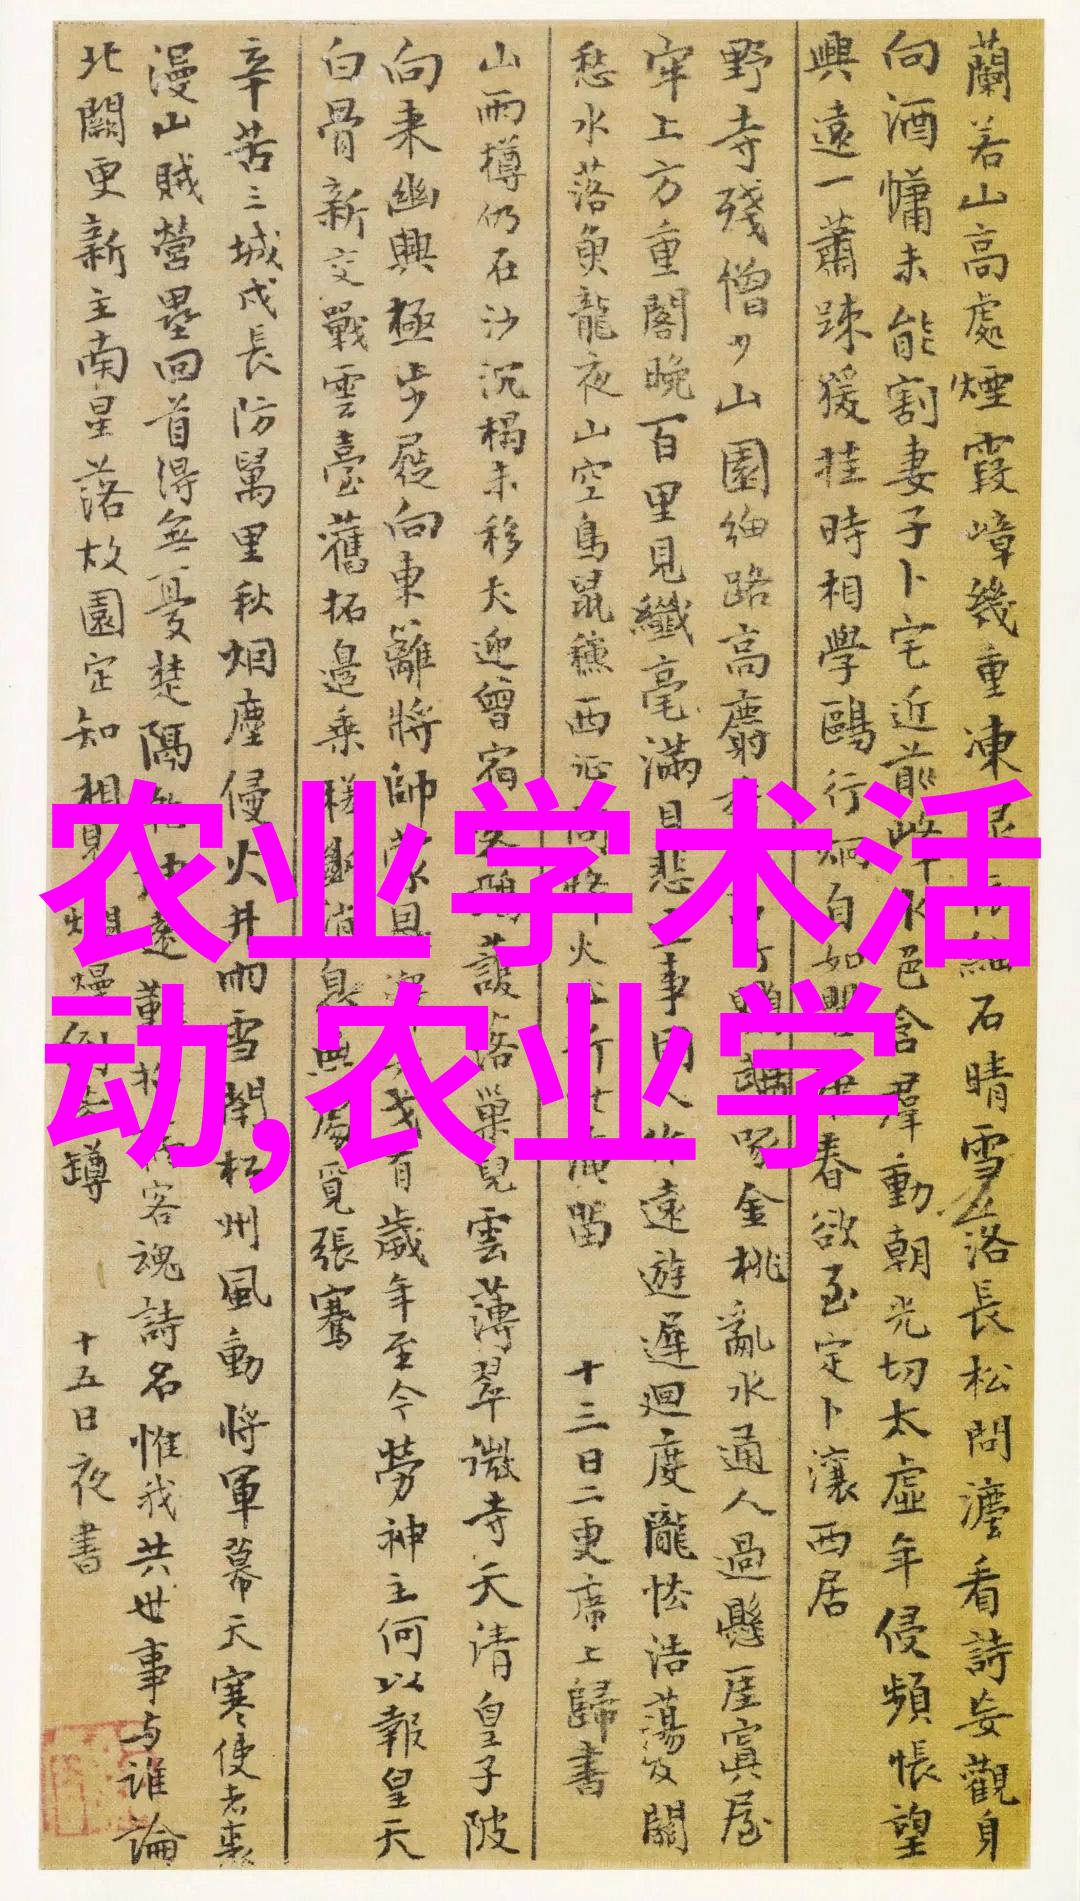 蘭若山高處煙霞嶂幾重凍石晴雪落長松問灋看詩妄觀身
向酒慵未能割妻子卜宅近前峰水色含羣動朝光切太虛年侵頻悵望
興遠一蕭踈猨挂時相學鷗行炯自如春欲至定卜瀼西居
野寺殘僧少山園細路高麝金桃亂水通人過懸厓寘屋
牢上方重閣晚百里見纖毫滿目悲生事因人作遠遊遲迴度隴怯浩蕩及關
愁水落魚龍夜山空鳥鼠穐西征問烽火心折此淹留 十三日二更席上歸書
山雨樽仍在沙沉榻未移犬迎曾宿鵶護落巢兒雲薄翠微寺天清皇子陂
向来幽興極步屧向東籬將帥蒙恩戈有歲年至今勞神主何以報皇天
白骨新交戰雲臺舊拓邉乗槎斷消息無處覓張騫
辛苦三城戍長防萬里秋烟塵侵火井雨雪閉松州風動将軍幕天寒使者裘
漫山賊營壘回首得無憂楚隔客魂詩名惟我共世事与誰論
北闕更新主南星落故園定知相見 十五日夜書
农业学术活
动,农业学